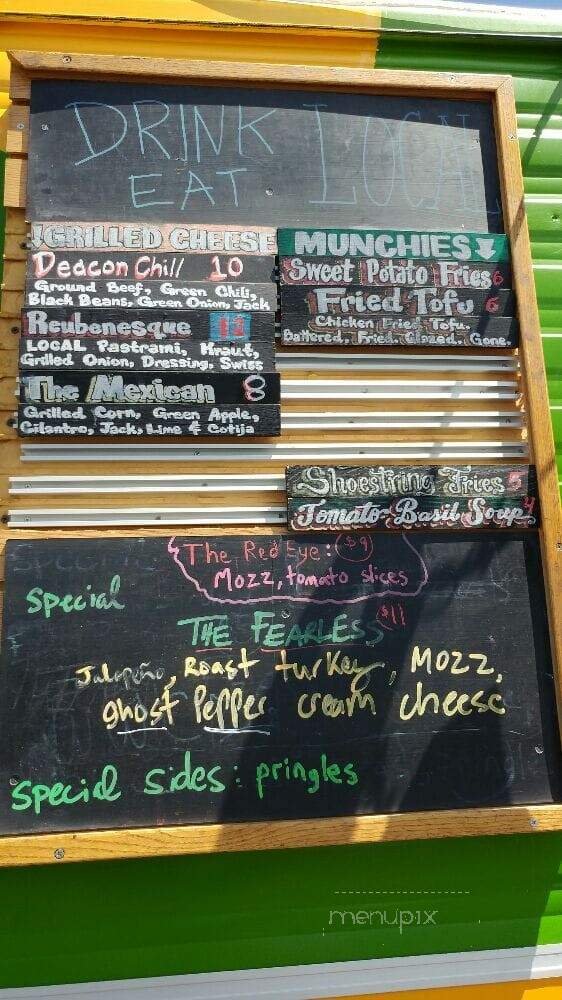 DRINK LOCAL
EAT
!GRILLED CHEESE
Deacon Chill 10
Ground Beef, Green Chili,
Black Beans, Green Onion, Jack
Reubenesque
LOCAL Pastrami, Kraut,
Grilled Onion, Dressing, Swiss
The Mexican 8
Grilled Corn, Green Apple,
Cilantro, Jack, Lime & Cotija
MUNCHIES
Sweet Potato Fries 6
Fried Tofu 6
Chicken Fried Tofu.
Battered. Fried. Glazed. Gone.
Shoestring Fries 5
Tomato-Basil Soup 4
The Red Eye: $9
Mozz, tomato slices
Special
THE FEARLESS $11
Jalapeño, Roast turkey, Mozz,
ghost Pepper cream cheese
special sides: pringles
menupix